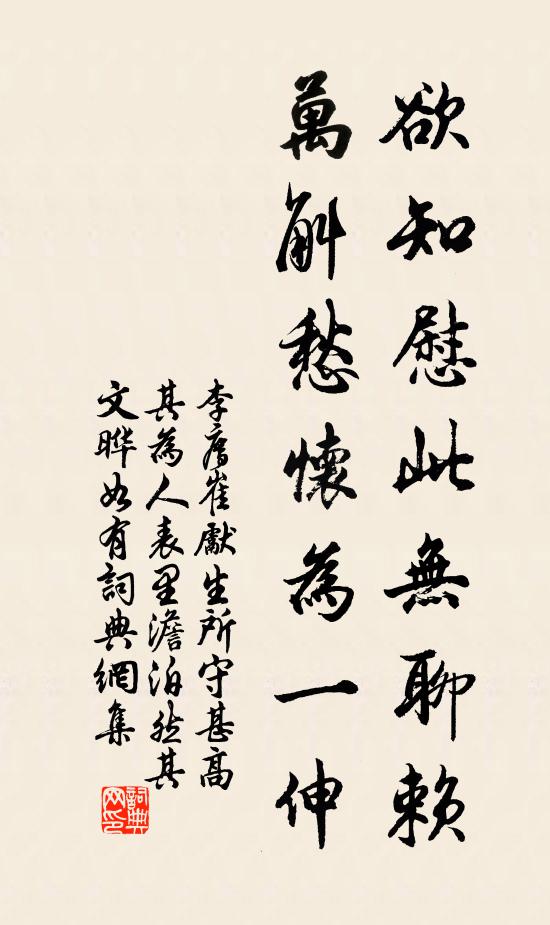 欲知慰此無聊賴
萬斛愁懷為一伸
李膺崔獻生所守甚高
其為人表里澹泊然其
文曄如有詞典網集
詞典網印